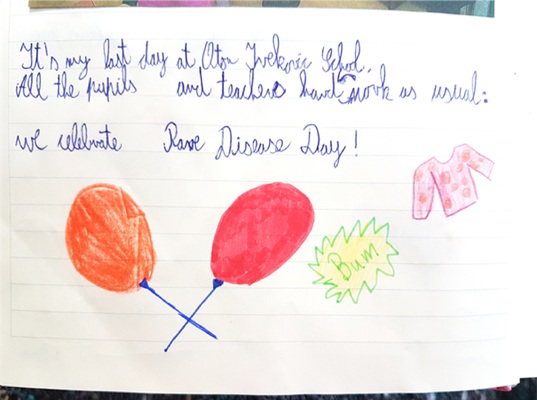 It's my last day at Oton Iveković School.
All the pupils and teachers hard work as usual:
we celebrate Rare Disease Day!
Bum